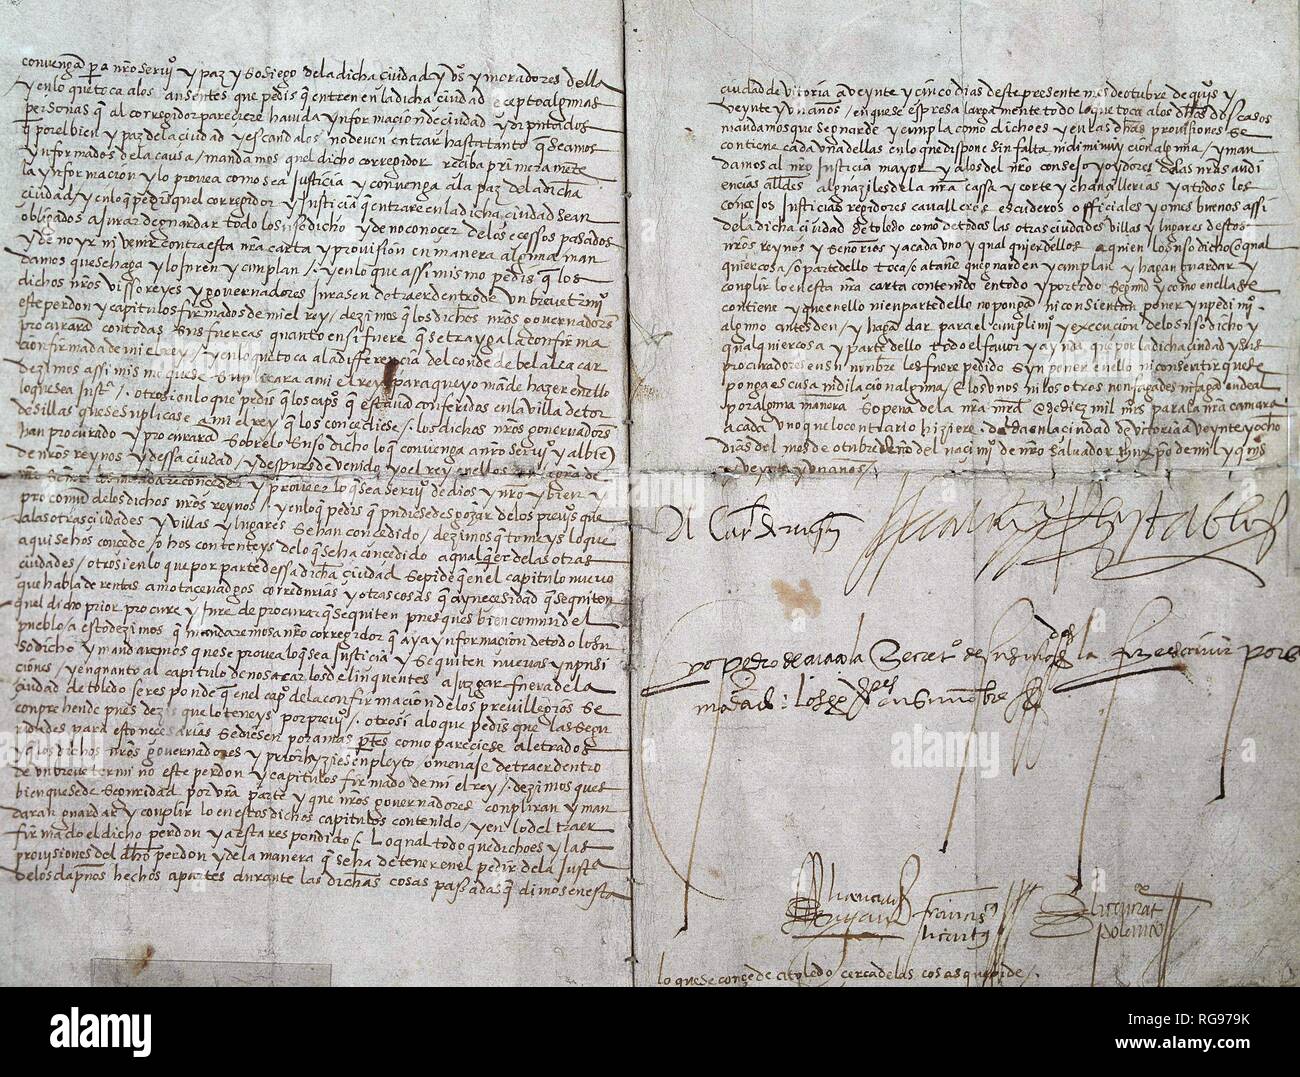 convenga para nro servio y paz y sosiego de la dicha ciudad y vos y moradores della
y en lo que toca a los ausentes que pedis q entren en la dicha ciudad ecepto algunas
personas q al corregidor pareciere havida ynformacion de ciudad y diputados
q por el bien y paz de la ciudad y escandalos no deven entrar hasta tanto q seamos
ynformados de la causa / mandamos quel dicho corregidor reciba primeramete
la ynformacion y lo provea como sea Justicia y convenga a la paz de la dicha
ciudad / y en lo q pedis quel corregidor y Justicia q entrare en la dicha ciudad sean
obligados a jurar de guardar todo lo susodicho y de no conocer de los ecessos pasados
y de no yr ni venir contra esta nra carta y provision en manera alguna man
damos que se haga y lo juren y cunplan / y en lo que assi mismo pedis q los
dichos nros vissoreyes y governadores juraran de traer dentro de un breve termio
este perdon y capitulos firmados de mi el rey / dezimos q los dichos nros governadores
procuraran con todas sus fuercas quanto en si fuere q se trayga la confirma
confirmada de mi el rey / y en lo que toca a la differencia del conde de belalcacar
dezimos assi mismo que se suplicara a mi el rey para que yo mande hazer en ello
lo que sea justa / otrosi en lo que pedis q los capos q estavan conferidas en la villa de tor
desillas que se suplicase a mi el rey q los concediese / los dichos nros governadores
han procurado y procuraran sobre lo susodicho lo q convenga a nro servio y al bien
de nros reynos y dessa ciudad / y despues de venido yo el rey en ellos
mandare conceder y proveer lo que sea servio de dios y nro y bien y
pro comun de los dichos nros reynos / y en lo q pedis q pudiesedes gozar de los previos que
a las otras ciudades y villas y lugares se han concedido / dezimos q tomeys lo que
aqui se hos concede / o hos contenteys de lo q se ha concedido a qualquier de las otras
ciudades / otrosi en lo que por parte dessa dicha ciudad se pide q en el capitulo nuevo
que habla de rentas almotacenadgos corredurias y otras cosas que ay necesidad q se quiten
quel dicho prior procure y jure de procurar q se quiten pues ques bien comun del
pueblo / a esto dezimos q mandaremos a nro corregidor q aya ynformacion de todo lo su
sodicho y mandaremos que se provea lo q sea Justicia y se quiten nuevas ynpusi
ciones / y en quanto al capitulo de no sacar los delinquentes a juzgar fuera de la
ciudad de toledo se responde q en el capo de la confirmacion de los previllegios se
conprehende pues dezis que lo teneys por previo / otrosi a lo que pedis que las segu
ridades para esto necesarias se diesen por amas ptes como pareciese a letrados
y q los dichos nros governadores y prior hyziesen pleyto omenaje de traer dentro
de un breve termino este perdon y capitulos firmados de mi el rey / dezimos ques
bien que se de seguridad por vra parte y que nros governadores cunpliran y man
daran guardar y conplir lo en estos dichos capitulos contenido / y en lo del traer
firmado el dicho perdon ya esta respondido / Lo qual todo que dicho es y las
provisiones del dicho perdon y de la manera q se ha de tener en el pedir de la justa
de los dapnos hechos a partes durante las dichas cosas pasadas q dimos en esta
ciudad de vitoria a veynte y cinco dias deste presente mes de otubre de quis
y veynte y un anos / en que se espresa largamente todo lo que toca a los dhos dos casos
mandamos que se guarde y cunpla como dicho es y en las dhas provisiones se
contiene cada una dellas en lo que dispone sin falta ni diminucion alguna / y man
damos al nro Justicia mayor y a los del nro consejo y oydores de las nras audi
encias alldes alguaziles de la nra cassa y corte y chancillerias y a todos los
concejos Justicias regidores cavalleros escuderos officiales y omes buenos assi
de la dicha ciudad de toledo como de todas las otras ciudades villas y lugares destos
nros reynos y señorios y a cada uno y qualquier dellos a quien lo susodicho o qual
quier cosa / o parte dello toca / o atañe que guarden y cunplan y hagan guardar y
cunplir lo en esta nra carta contenido en todo y por todo segund y como en ella se
contiene y que en ello ni en parte dello no pongan ni consientan poner ynpedimio
alguno antes den / y hagan dar para el cunplimio y execucion de lo susodicho y
qualquier cosa y parte dello todo el favor y ayuda que por la dicha ciudad y sus
procuradores en su nonbre les fuere pedido syn poner en ello ni consentir que se
ponga escusa ni dilacion alguna / E los unos ni los otros non fagades ni fagan ende al
por alguna manera so pena de la nra mrd E de diez mil mrs para la nra camara
a cada uno que lo contrario hiziere. dada en la ciudad de vitoria a veynte y ocho
dias del mes de otubre Año del nacimio de nro salvador Jhu xpo de mil y quis
y veynte y un anos
yo pedro de secreto de sus la fize escrivir por su
mandado: los gores en su nonbre
licenciat
polanco
lo que se concede a toledo cerca de las cosas que pide
alamy
Image ID: RG979K
www.alamy.com